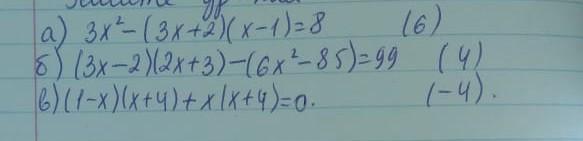 а) 3x²-(3x+2)(x-1)=8 (6)
б) (3x-2)(2x+3)-(6x²-85)=99 (4)
в) (1-x)(x+4)+x(x+4)=0. (-4).